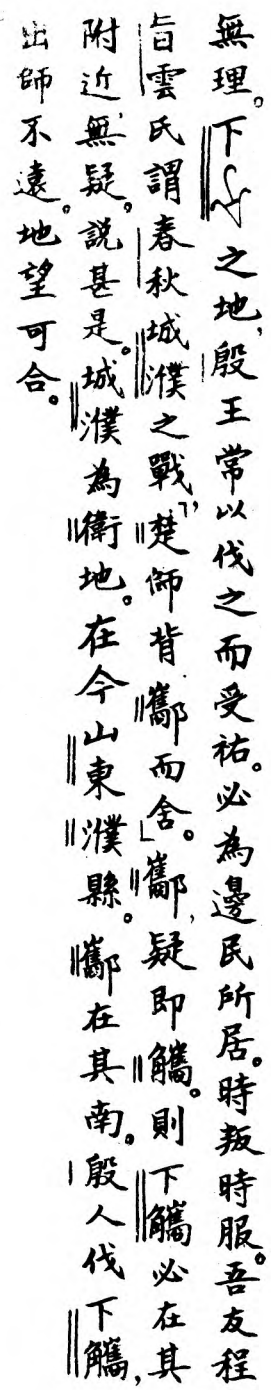 無理。下之地，殷王常以伐之而受祐。必為邊民所居。時叛時服。吾友程
旨雲氏謂春秋城濮之戰，「楚師背酅而舍。」酅，疑即觿。則下觿必在其
附近，無疑，說甚是。城濮為衛地。在今山東濮縣。酅在其南。殷人伐下觿，
出師不遠。地望可合。